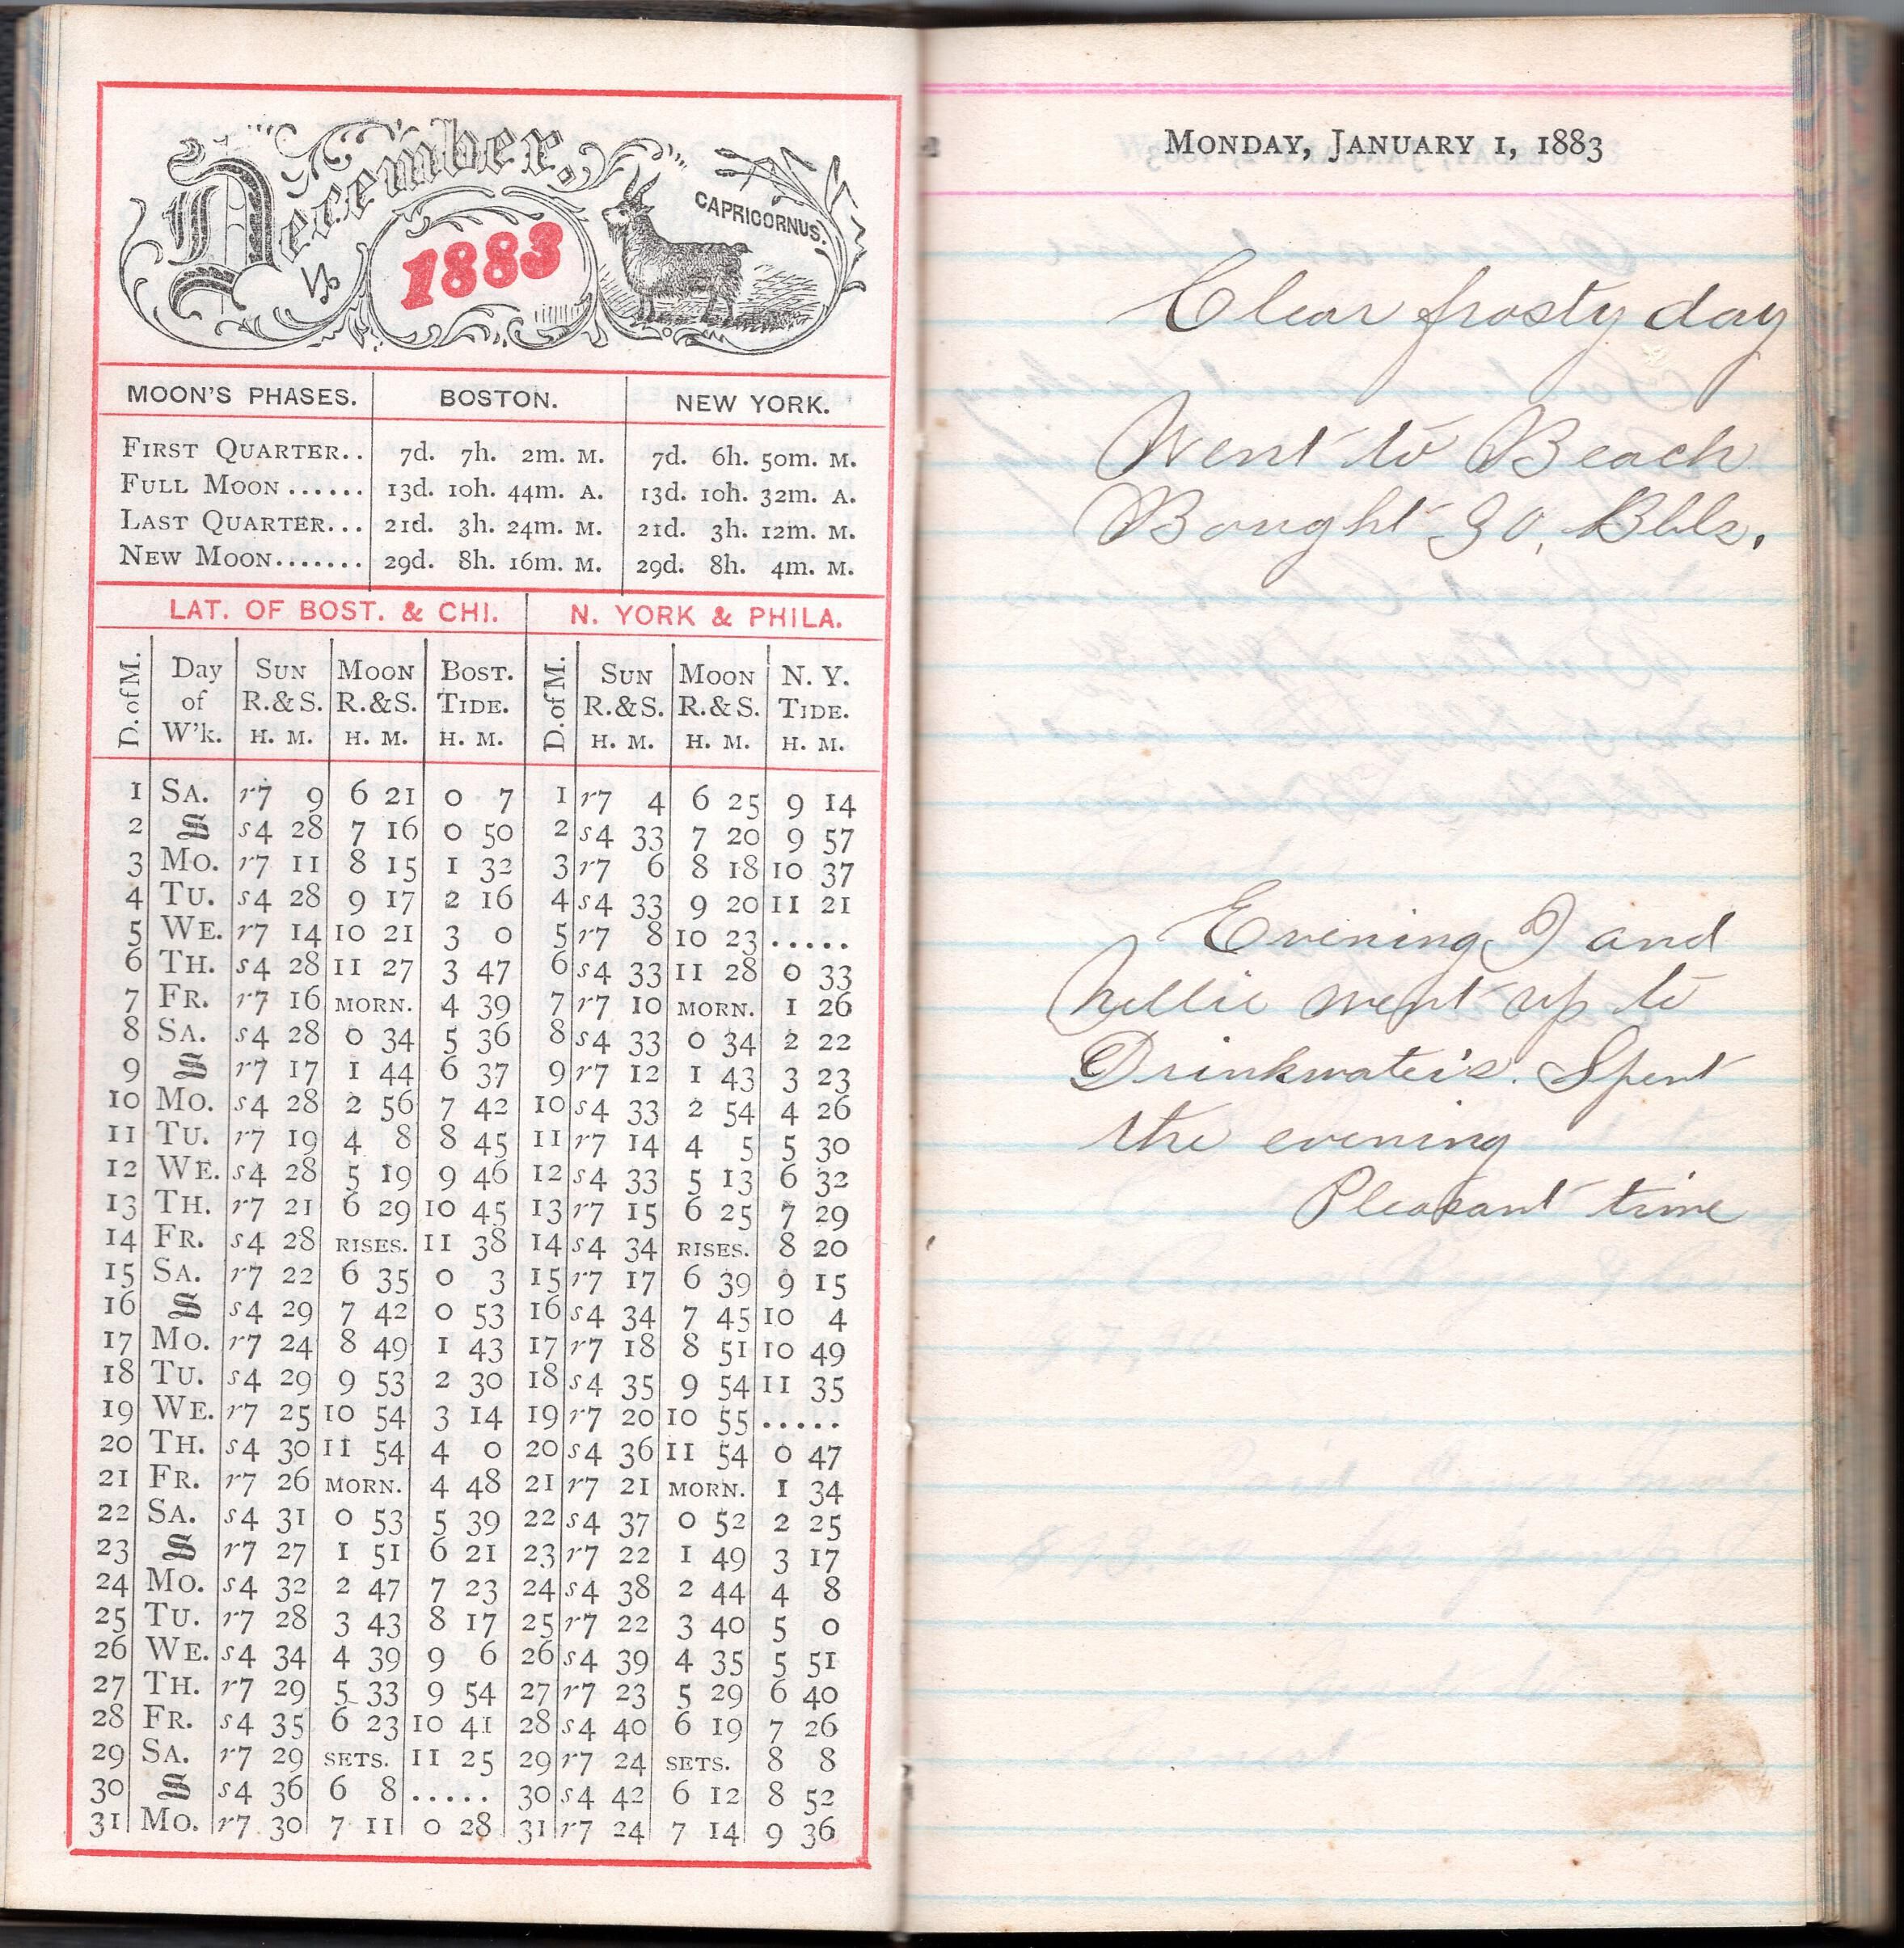 December,
1883
CAPRICORNUS.
MOON'S PHASES. BOSTON. NEW YORK.
FIRST QUARTER.. 7d. 7h. 2m. M. 7d. 6h. 50m. M.
FULL MOON ...... 13d. 10h. 44m. A. 13d. 10h. 32m. A.
LAST QUARTER... 21d. 3h. 24m. M. 21d. 3h. 12m. M.
NEW MOON....... 29d. 8h. 16m. M. 29d. 8h. 4m. M.
LAT. OF BOST. & CHI. N. YORK & PHILA.
D. of M. Day of W'k. SUN R.&S. H. M. MOON R.&S. H. M. BOST. TIDE. H. M. D. of M. SUN R.&S. H. M. MOON R.&S. H. M. N. Y. TIDE. H. M.
1 SA. r7 9 6 21 0 7 1 r7 4 6 25 9 14
2 S s4 28 7 16 0 50 2 s4 33 7 20 9 57
3 MO. r7 11 8 15 1 32 3 r7 6 8 18 10 37
4 TU. s4 28 9 17 2 16 4 s4 33 9 20 11 21
5 WE. r7 14 10 21 3 0 5 r7 8 10 23 .....
6 TH. s4 28 11 27 3 47 6 s4 33 11 28 0 33
7 FR. r7 16 MORN. 4 39 7 r7 10 MORN. 1 26
8 SA. s4 28 0 34 5 36 8 s4 33 0 34 2 22
9 S r7 17 1 44 6 37 9 r7 12 1 43 3 23
10 MO. s4 28 2 56 7 42 10 s4 33 2 54 4 26
11 TU. r7 19 4 8 8 45 11 r7 14 4 5 5 30
12 WE. s4 28 5 19 9 46 12 s4 33 5 13 6 32
13 TH. r7 21 6 29 10 45 13 r7 15 6 25 7 29
14 FR. s4 28 RISES. 11 38 14 s4 34 RISES. 8 20
15 SA. r7 22 6 35 0 3 15 r7 17 6 39 9 15
16 S s4 29 7 42 0 53 16 s4 34 7 45 10 4
17 MO. r7 24 8 49 1 43 17 r7 18 8 51 10 49
18 TU. s4 29 9 53 2 30 18 s4 35 9 54 11 35
19 WE. r7 25 10 54 3 14 19 r7 20 10 55 .....
20 TH. s4 30 11 54 4 0 20 s4 36 11 54 0 47
21 FR. r7 26 MORN. 4 48 21 r7 21 MORN. 1 34
22 SA. s4 31 0 53 5 39 22 s4 37 0 52 2 25
23 S r7 27 1 51 6 21 23 r7 22 1 49 3 17
24 MO. s4 32 2 47 7 23 24 s4 38 2 44 4 8
25 TU. r7 28 3 43 8 17 25 r7 22 3 40 5 0
26 WE. s4 34 4 39 9 6 26 s4 39 4 35 5 51
27 TH. r7 29 5 33 9 54 27 r7 23 5 29 6 40
28 FR. s4 35 6 23 10 41 28 s4 40 6 19 7 26
29 SA. r7 29 SETS. 11 25 29 r7 24 SETS. 8 8
30 S s4 36 6 8 ..... 30 s4 42 6 12 8 52
31 MO. r7 30 7 11 0 28 31 r7 24 7 14 9 36
MONDAY, JANUARY 1, 1883
Clear frosty day
Went to Beach
Bought 30, Bbls.
Evening I and
Nellie went up to
Drinkwater's. Spent
the evening
Pleasant time